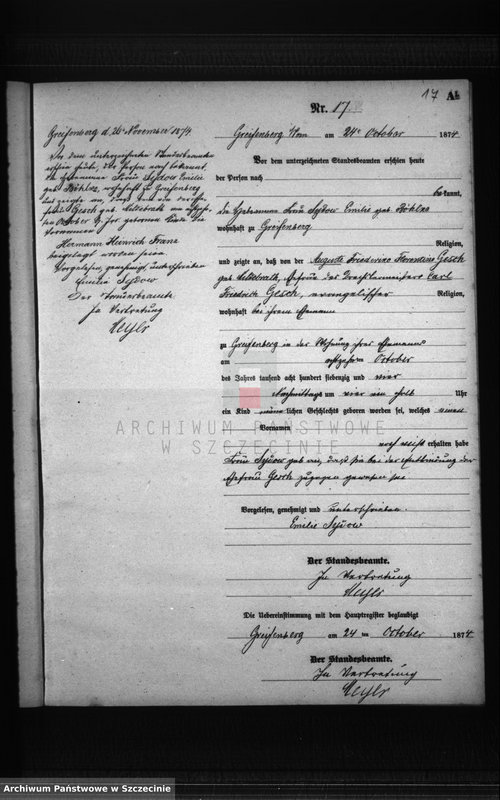 17 A
Nr. 17
Greifenberg d. 26 November 1874
Vor dem unterzeichneten Standesbeamten
erschien heute, der Person nach bekannt,
die Hebamme Frau Sydow Emilie
geb. wohnhaft zu Greifenberg
und zeigte an, daß von der
Gesch geb.
October d. Jhr. geborenen Kinde die
Vornamen
Hermann Heinrich Franz
beigelegt worden seien
Vorgelesen, genehmigt, unterschrieben
Emilie Sydow
Der Standesbeamte
In Vertretung
Greifenberg am 24 October 1874
Vor dem unterzeichneten Standesbeamten erschien heute
der Person nach
bekannt,
die Hebamme Frau Sydow Emilie geb.
wohnhaft zu Greifenberg
Religion,
und zeigte an, daß von der Auguste Friederike Florentine Gesch
geb. Ehefrau des Carl
Friedrich Gesch, evangelischer Religion,
wohnhaft bei ihrem Ehemann
zu Greifenberg in der Wohnung ihres Ehemanns
am October
des Jahres tausend acht hundert siebenzig und vier
Nachmittags um vier ein halb Uhr
ein Kind männlichen Geschlechts geboren worden sei, welches einen
Vornamen
noch nicht erhalten habe
Frau Sydow gab an, daß sie bei der Entbindung der
Ehefrau Gesch zugegen gewesen sei
Vorgelesen, genehmigt und unterschrieben.
Emilie Sydow
Der Standesbeamte.
In Vertretung
Die Uebereinstimmung mit dem Hauptregister beglaubigt
Greifenberg am 24 ten October 1874
Der Standesbeamte.
In Vertretung
ARCHIWUM PAŃSTWOWE
W SZCZECINIE
Archiwum Państwowe w Szczecinie